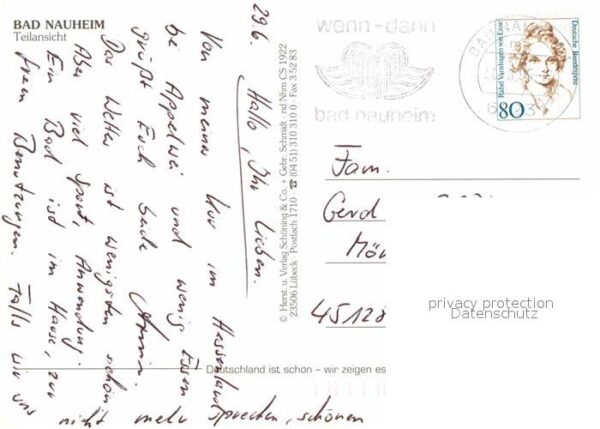 BAD NAUHEIM
Teilansicht
29.6. Hallo, Ihr Lieben.
Von meiner Kur im Hessenland
be Appelwei und wenig Essen
grüßt Euch beide Armin.
Das Wetter ist wenigsten schön
Aber viel Sport, Anwendung.
Ein Bad ist im Hause, zur
freien Benutzungen. Falls wir uns
nicht mehr sprechen, schönen
© Herst. u. Verlag Schöning & Co. + Gebr. Schmidt · pd Nhm CS 1922
23506 Lübeck · Postfach 1710 · ☎ (04 51) 310 310 0 · Fax 3 52 83
Deutschland ist schön – wir zeigen es
wenn-dann
bad nauheim
BAD NAU
Deutsche Bundespost
Rahel Varnhagen von Ense
80
Fam.
Gerd
Mör
45128
privacy protection
Datenschutz